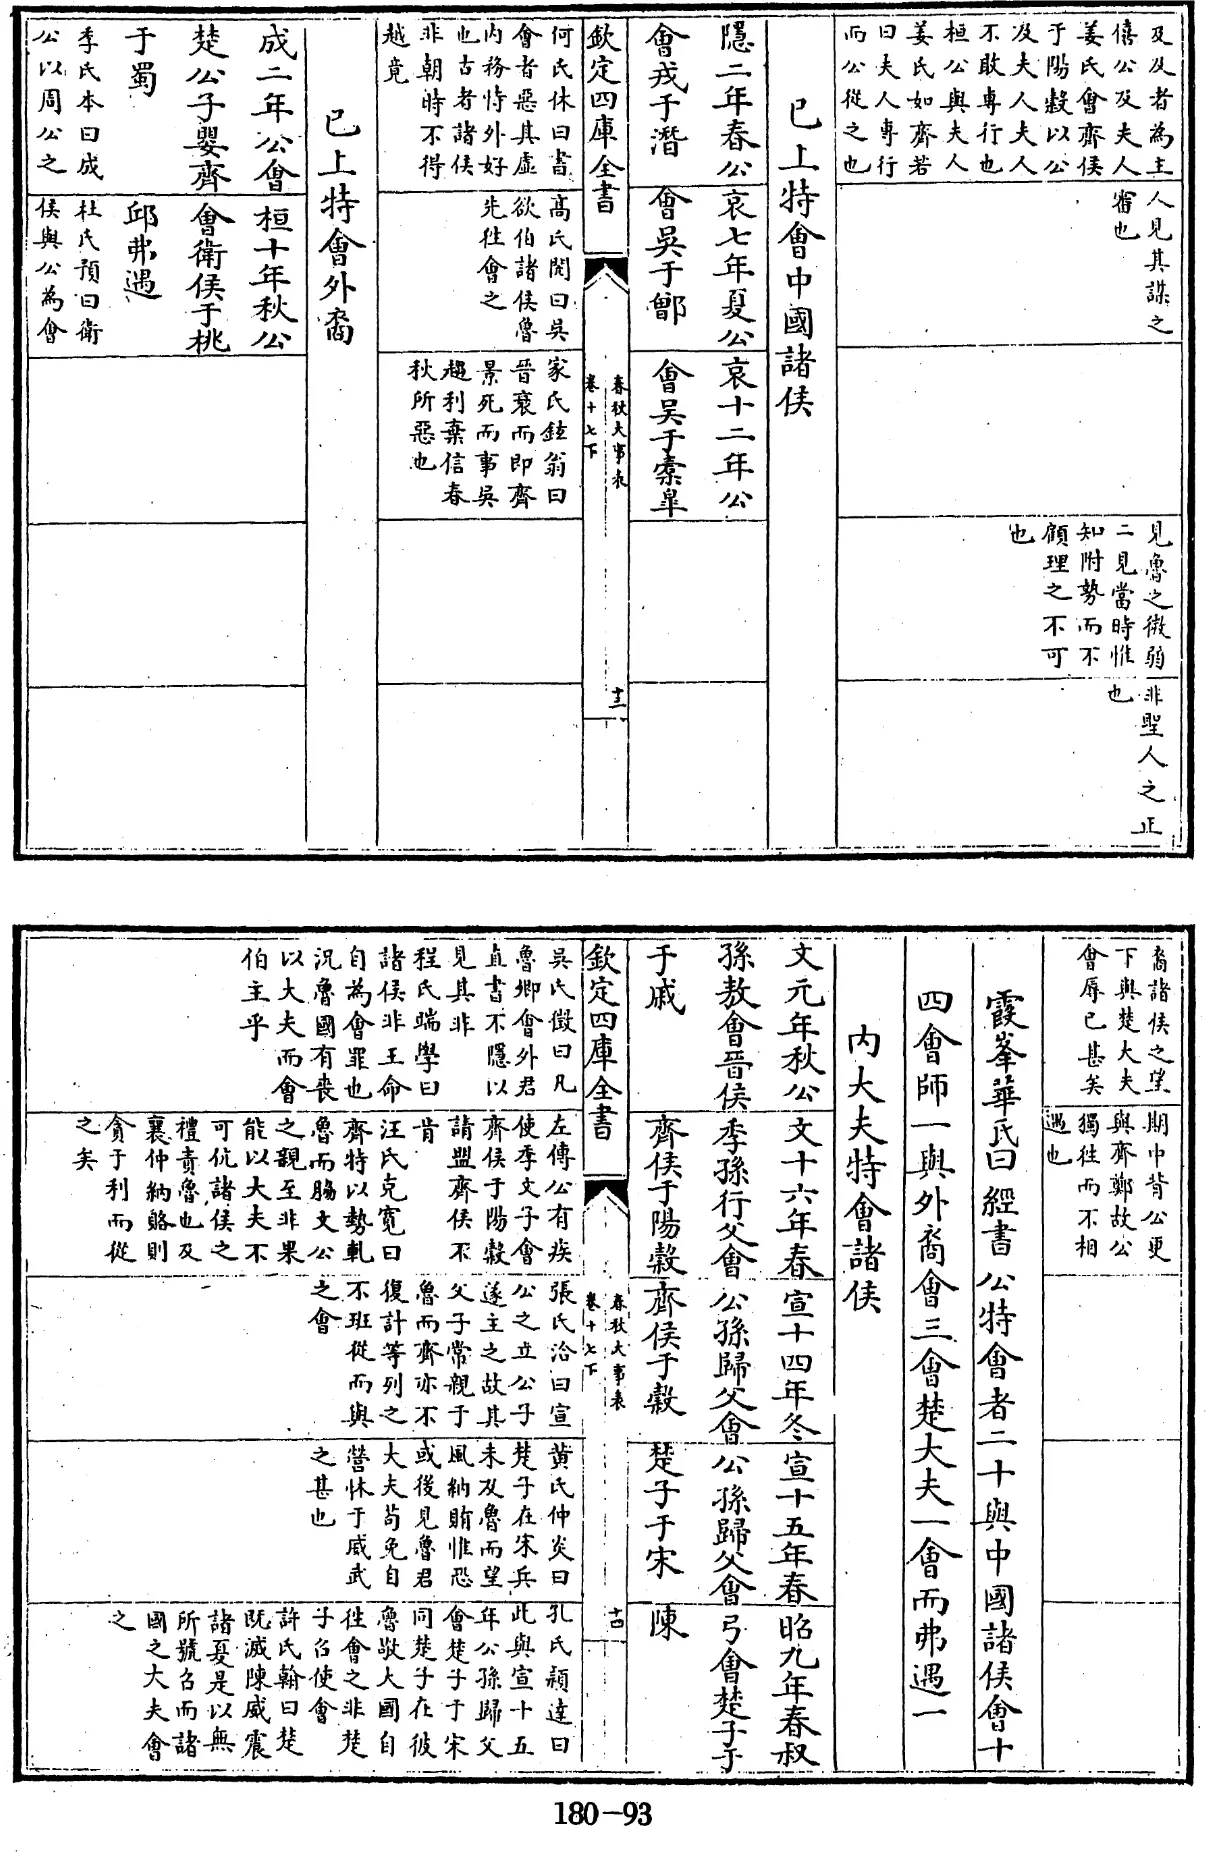 及及者為主
僖公及夫人
姜氏會齊侯
于陽穀以公
及夫人夫人
不敢專行也
桓公與夫人
姜氏如齊若
曰夫人專行
而公從之也
人見其謀之
審也
見魯之微弱
二見當時惟
知附勢而不
顧理之不可
也
非聖人之正
也
已上特會中國諸侯
隱二年春公
會戎于潛
哀七年夏公
會吳于鄫
哀十二年公
會吳于橐臯
欽定四庫全書
春秋大事表
卷十七下
十三
何氏休曰書
會者惡其虛
内務恃外好
也古者諸侯
非朝時不得
越竟
高氏閌曰吳
欲伯諸侯魯
先徃會之
家氏鉉翁曰
晉衰而即齊
景死而事吳
趨利棄信春
秋所惡也
已上特會外裔
成二年公會
楚公子嬰齊
于蜀
桓十年秋公
會衛侯于桃
邱弗遇
季氏本曰成
公以周公之
杜氏預曰衛
侯與公為會
裔諸侯之望
下與楚大夫
會辱已甚矣
期中背公更
與齊鄭故公
獨徃而不相
遇也
霞峯華氏曰經書公特會者二十與中國諸侯會十
四會師一與外裔會三會楚大夫一會而弗遇一
内大夫特會諸侯
文元年秋公
孫敖會晉侯
于戚
文十六年春
季孫行父會
齊侯于陽穀
宣十四年冬
公孫歸父會
齊侯于穀
宣十五年春
公孫歸父會
楚子于宋
昭九年春叔
弓會楚子于
陳
欽定四庫全書
春秋大事表
卷十七下
十四
吳氏澂曰凡
魯卿會外君
直書不隱以
見其非
程氏端學曰
諸侯非王命
自為會罪也
況魯國有喪
以大夫而會
伯主乎
左傳公有疾
使季文子會
齊侯于陽穀
請盟齊侯不
肯
汪氏克寛曰
齊特以勢軋
魯而脇文公
之親至非果
能以大夫不
可伉諸侯之
禮責魯也及
襄仲納賂則
貪于利而從
之矣
張氏洽曰宣
公之立公子
遂主之故其
父子常親于
魯而齊亦不
復計等列之
不班從而與
之會
黄氏仲炎曰
楚子在宋兵
未及魯而望
風納賄惟恐
或後見魯君
大夫苟免自
營怵于威武
之甚也
孔氏穎達曰
此與宣十五
年公孫歸父
會楚子于宋
同楚子在彼
魯敬大國自
徃會之非楚
子召使會
許氏翰曰楚
既滅陳威震
諸夏是以無
所號召而諸
國之大夫會
之
180-93